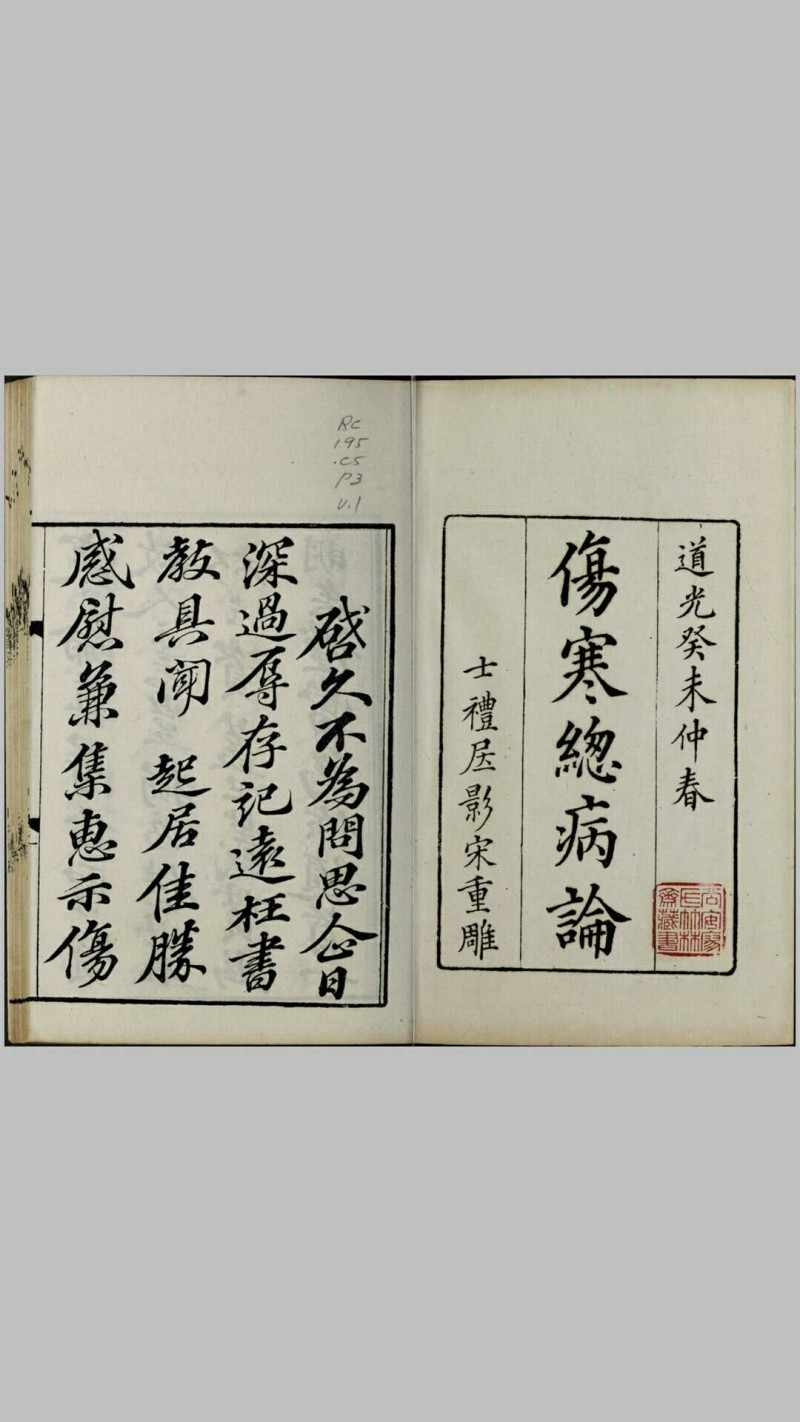 道光癸未仲春
傷寒緫病論
士禮居影宋重雕
RC
195
.C5
P3
V.1
啓久不為問思企日
深過辱存記遠枉書
教具聞 起居佳勝
感慰兼集惠示傷